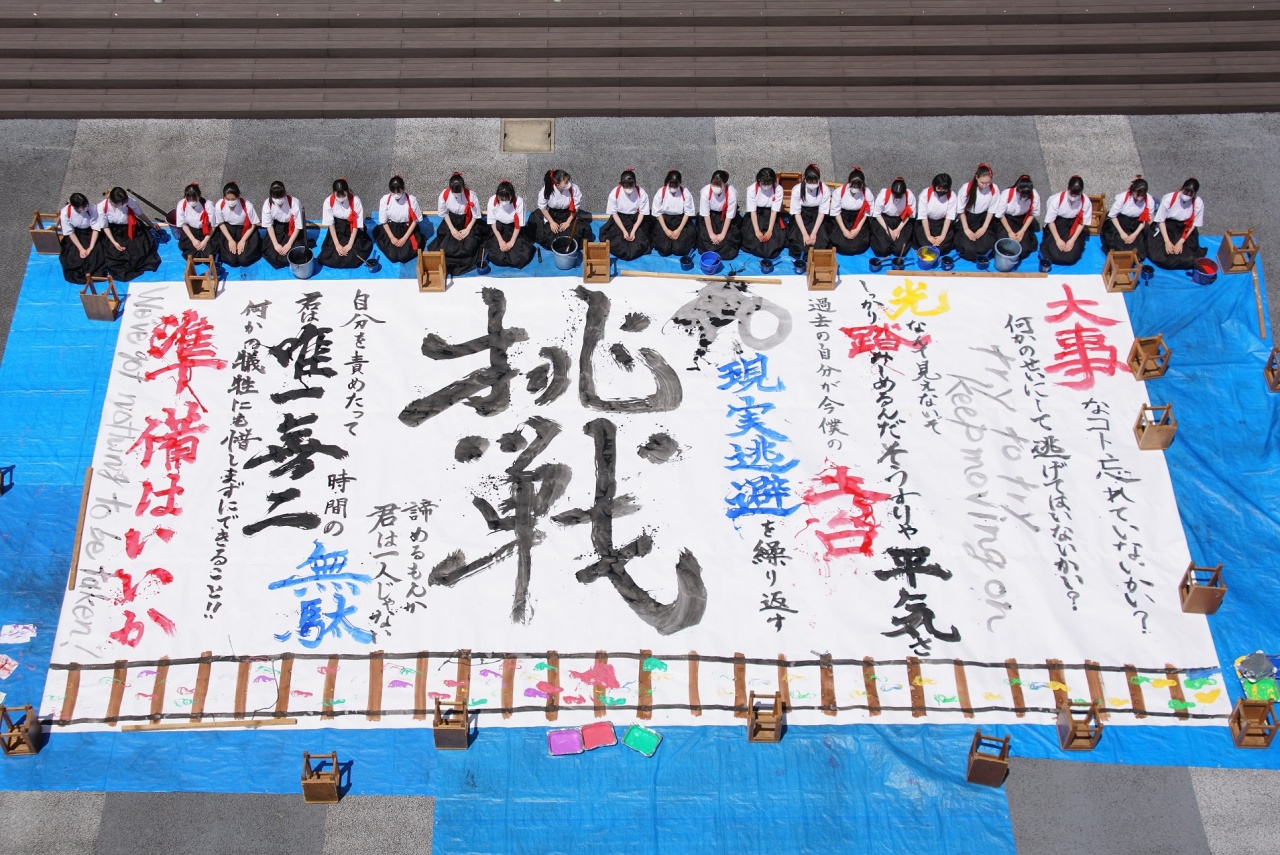 大事なコト忘れていないかい?
何かのせいにして逃げてはいないかい?
try to try
keep moving on
光なんて見えないで
しっかり踏みしめるんだそうすりゃ平気さ
過去の自分が今僕の土台
現実逃避を繰り返す
挑戦
諦めるもんか
君は一人じゃない
自分を責めたって
時間の無駄
君は唯一無二
何かの犠牲にも惜しまずにできること!!
準備はいいか
We've got nothing to be taken!